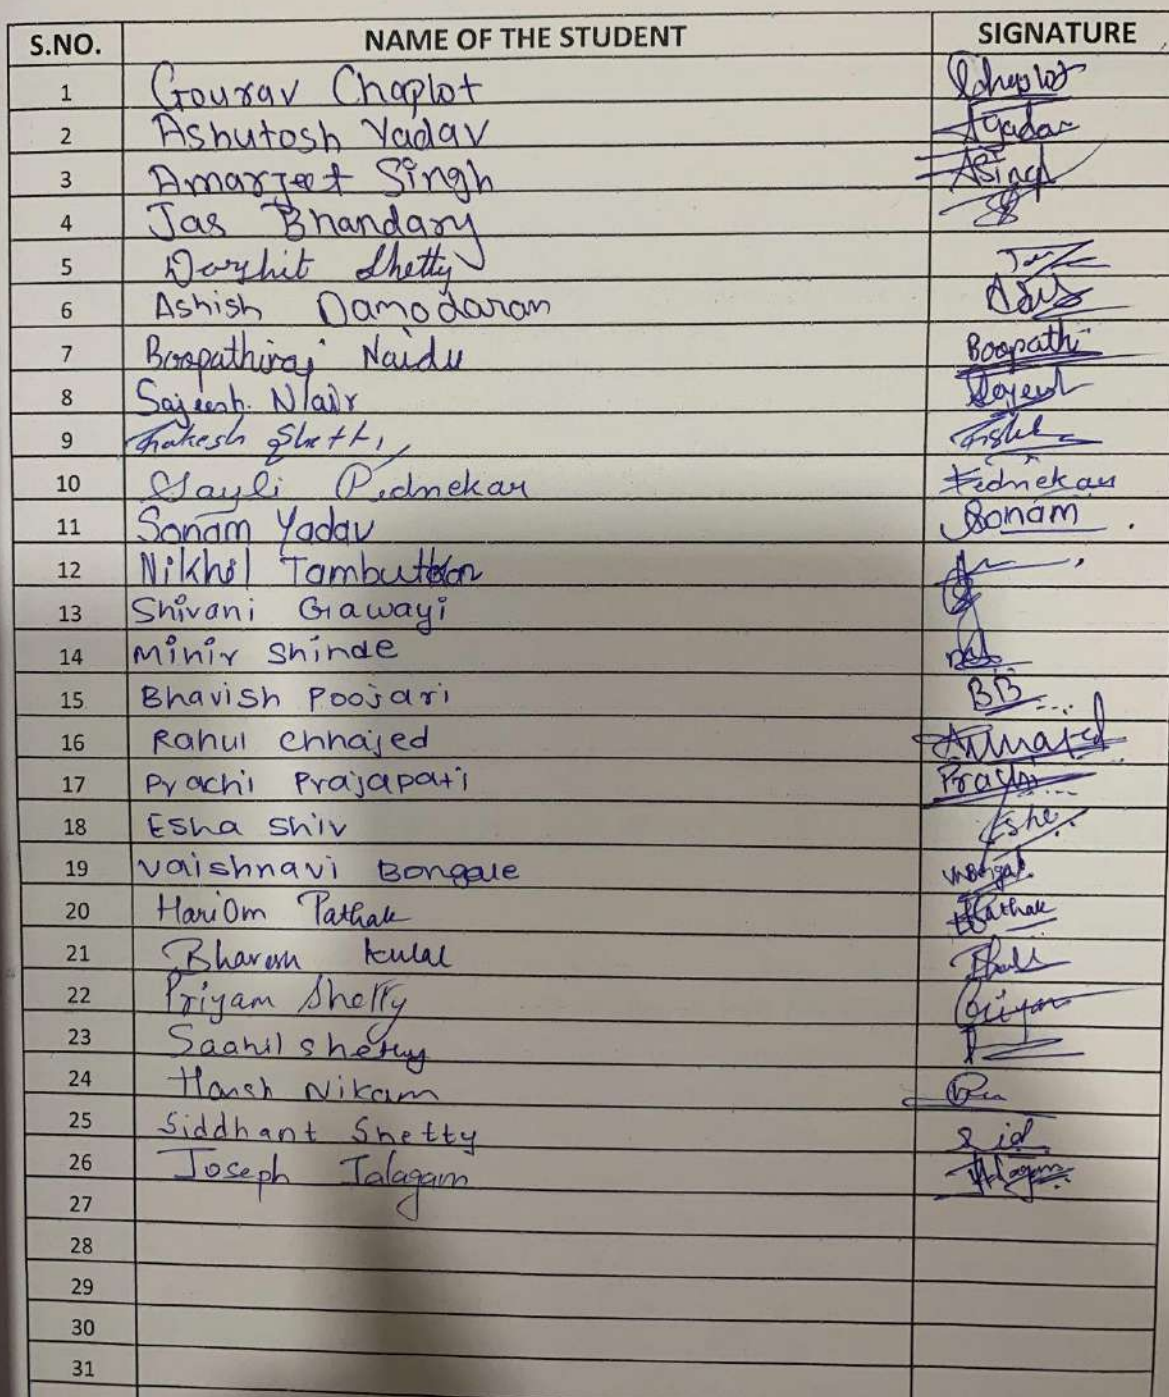 S.NO. NAME OF THE STUDENT SIGNATURE
1 Gourav Chaplot Chaplot
2 Ashutosh Yadav AYadav
3 Amarjeet Singh ASingh
4 Jas Bhandary
5 Darshit Shetty
6 Ashish Damodaran
7 Boopathiraj Naidu Boopathi
8 Sajeesh Nair Sajeesh
9 Shetti
10 Sayli Pednekar Pednekar
11 Sonam Yadav Sonam
12 Nikhil
13 Shivani Gawayi
14 Minir Shinde
15 Bhavish Poojari BB
16 Rahul Chhajed
17 Prachi Prajapati Prachi
18 Esha Shiv Esha
19 Vaishnavi Bongale VBongale
20 HariOm Pathak HPathak
21 Bhavesh Kulal
22 Priyam Shetty Priyam
23 Saahil Shetty
24 Harsh Nikam
25 Siddhant Shetty Sid
26 Joseph Jalagam Jalagam
27
28
29
30
31